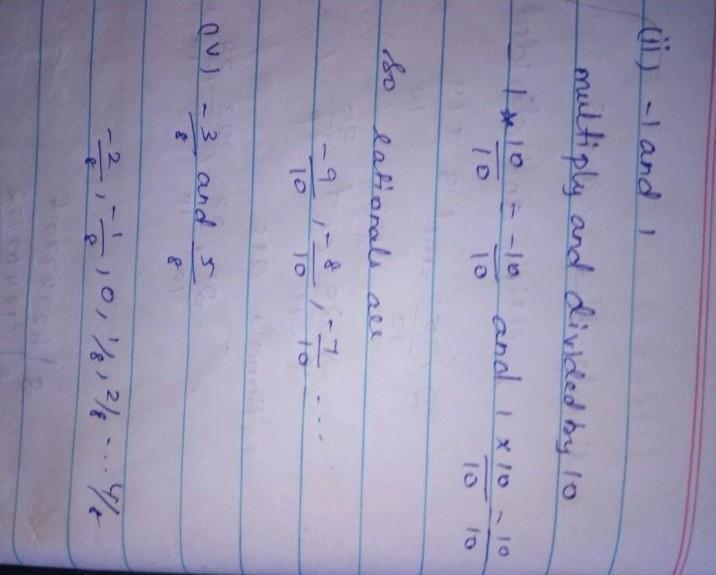 (ii) -1 and 1
multiply and divided by 10
-1 × 10/10 = -10/10 and 1 × 10/10 = 10/10
So rationals are
-9/10, -8/10, -7/10 ...
(iv) -3/8 and 5/8
-2/8, -1/8, 0, 1/8, 2/8 ... 4/8